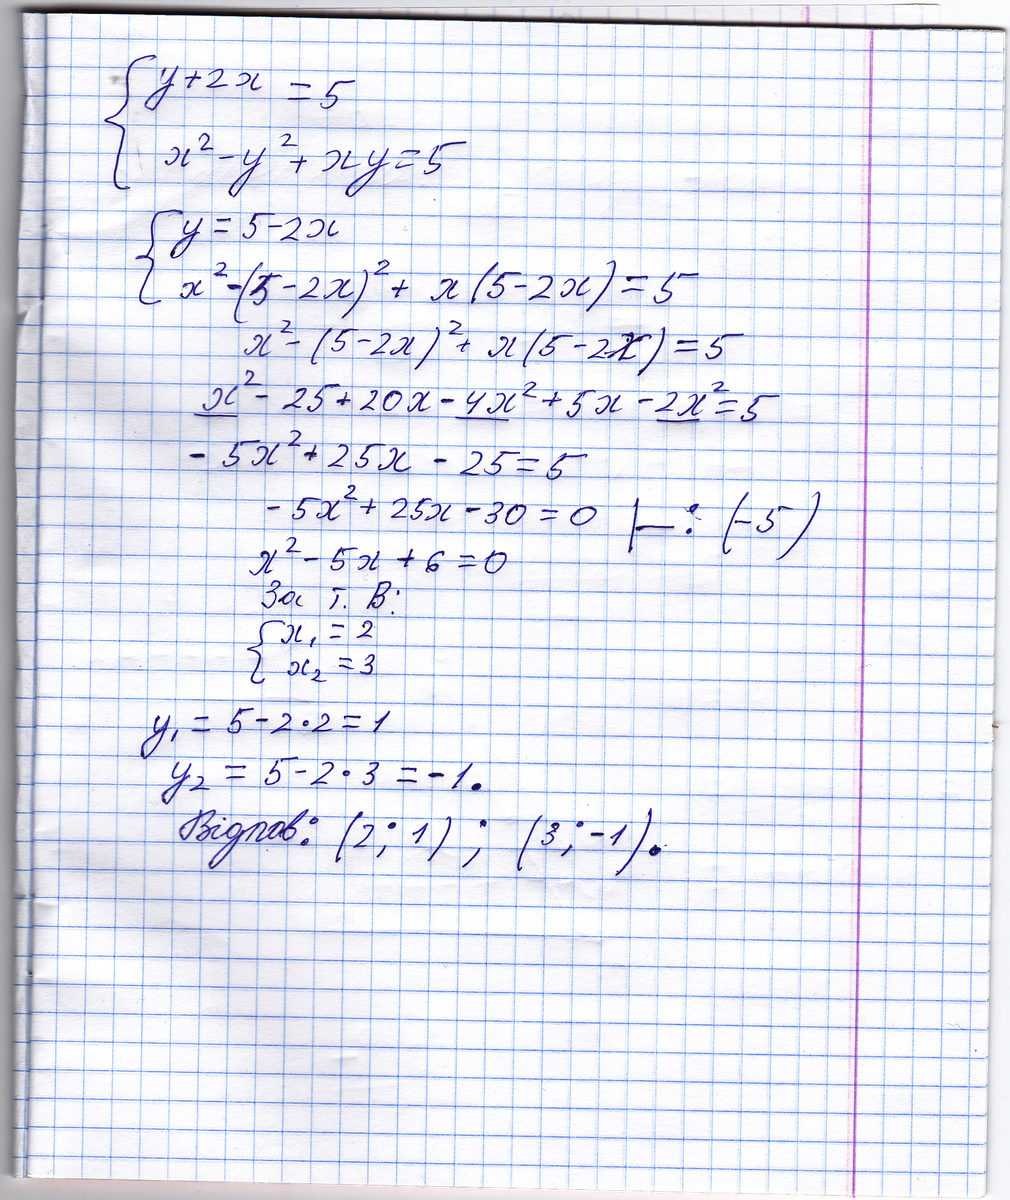 { y + 2x = 5
x² - y² + xy = 5
{ y = 5 - 2x
x² - (5 - 2x)² + x(5 - 2x) = 5
x² - (5 - 2x)² + x(5 - 2x) = 5
x² - 25 + 20x - 4x² + 5x - 2x² = 5
- 5x² + 25x - 25 = 5
- 5x² + 25x - 30 = 0 |— : (-5)
x² - 5x + 6 = 0
За т. В:
{ x₁ = 2
x₂ = 3
y₁ = 5 - 2 · 2 = 1
y₂ = 5 - 2 · 3 = -1.
Відпов: (2; 1) ; (3; -1).